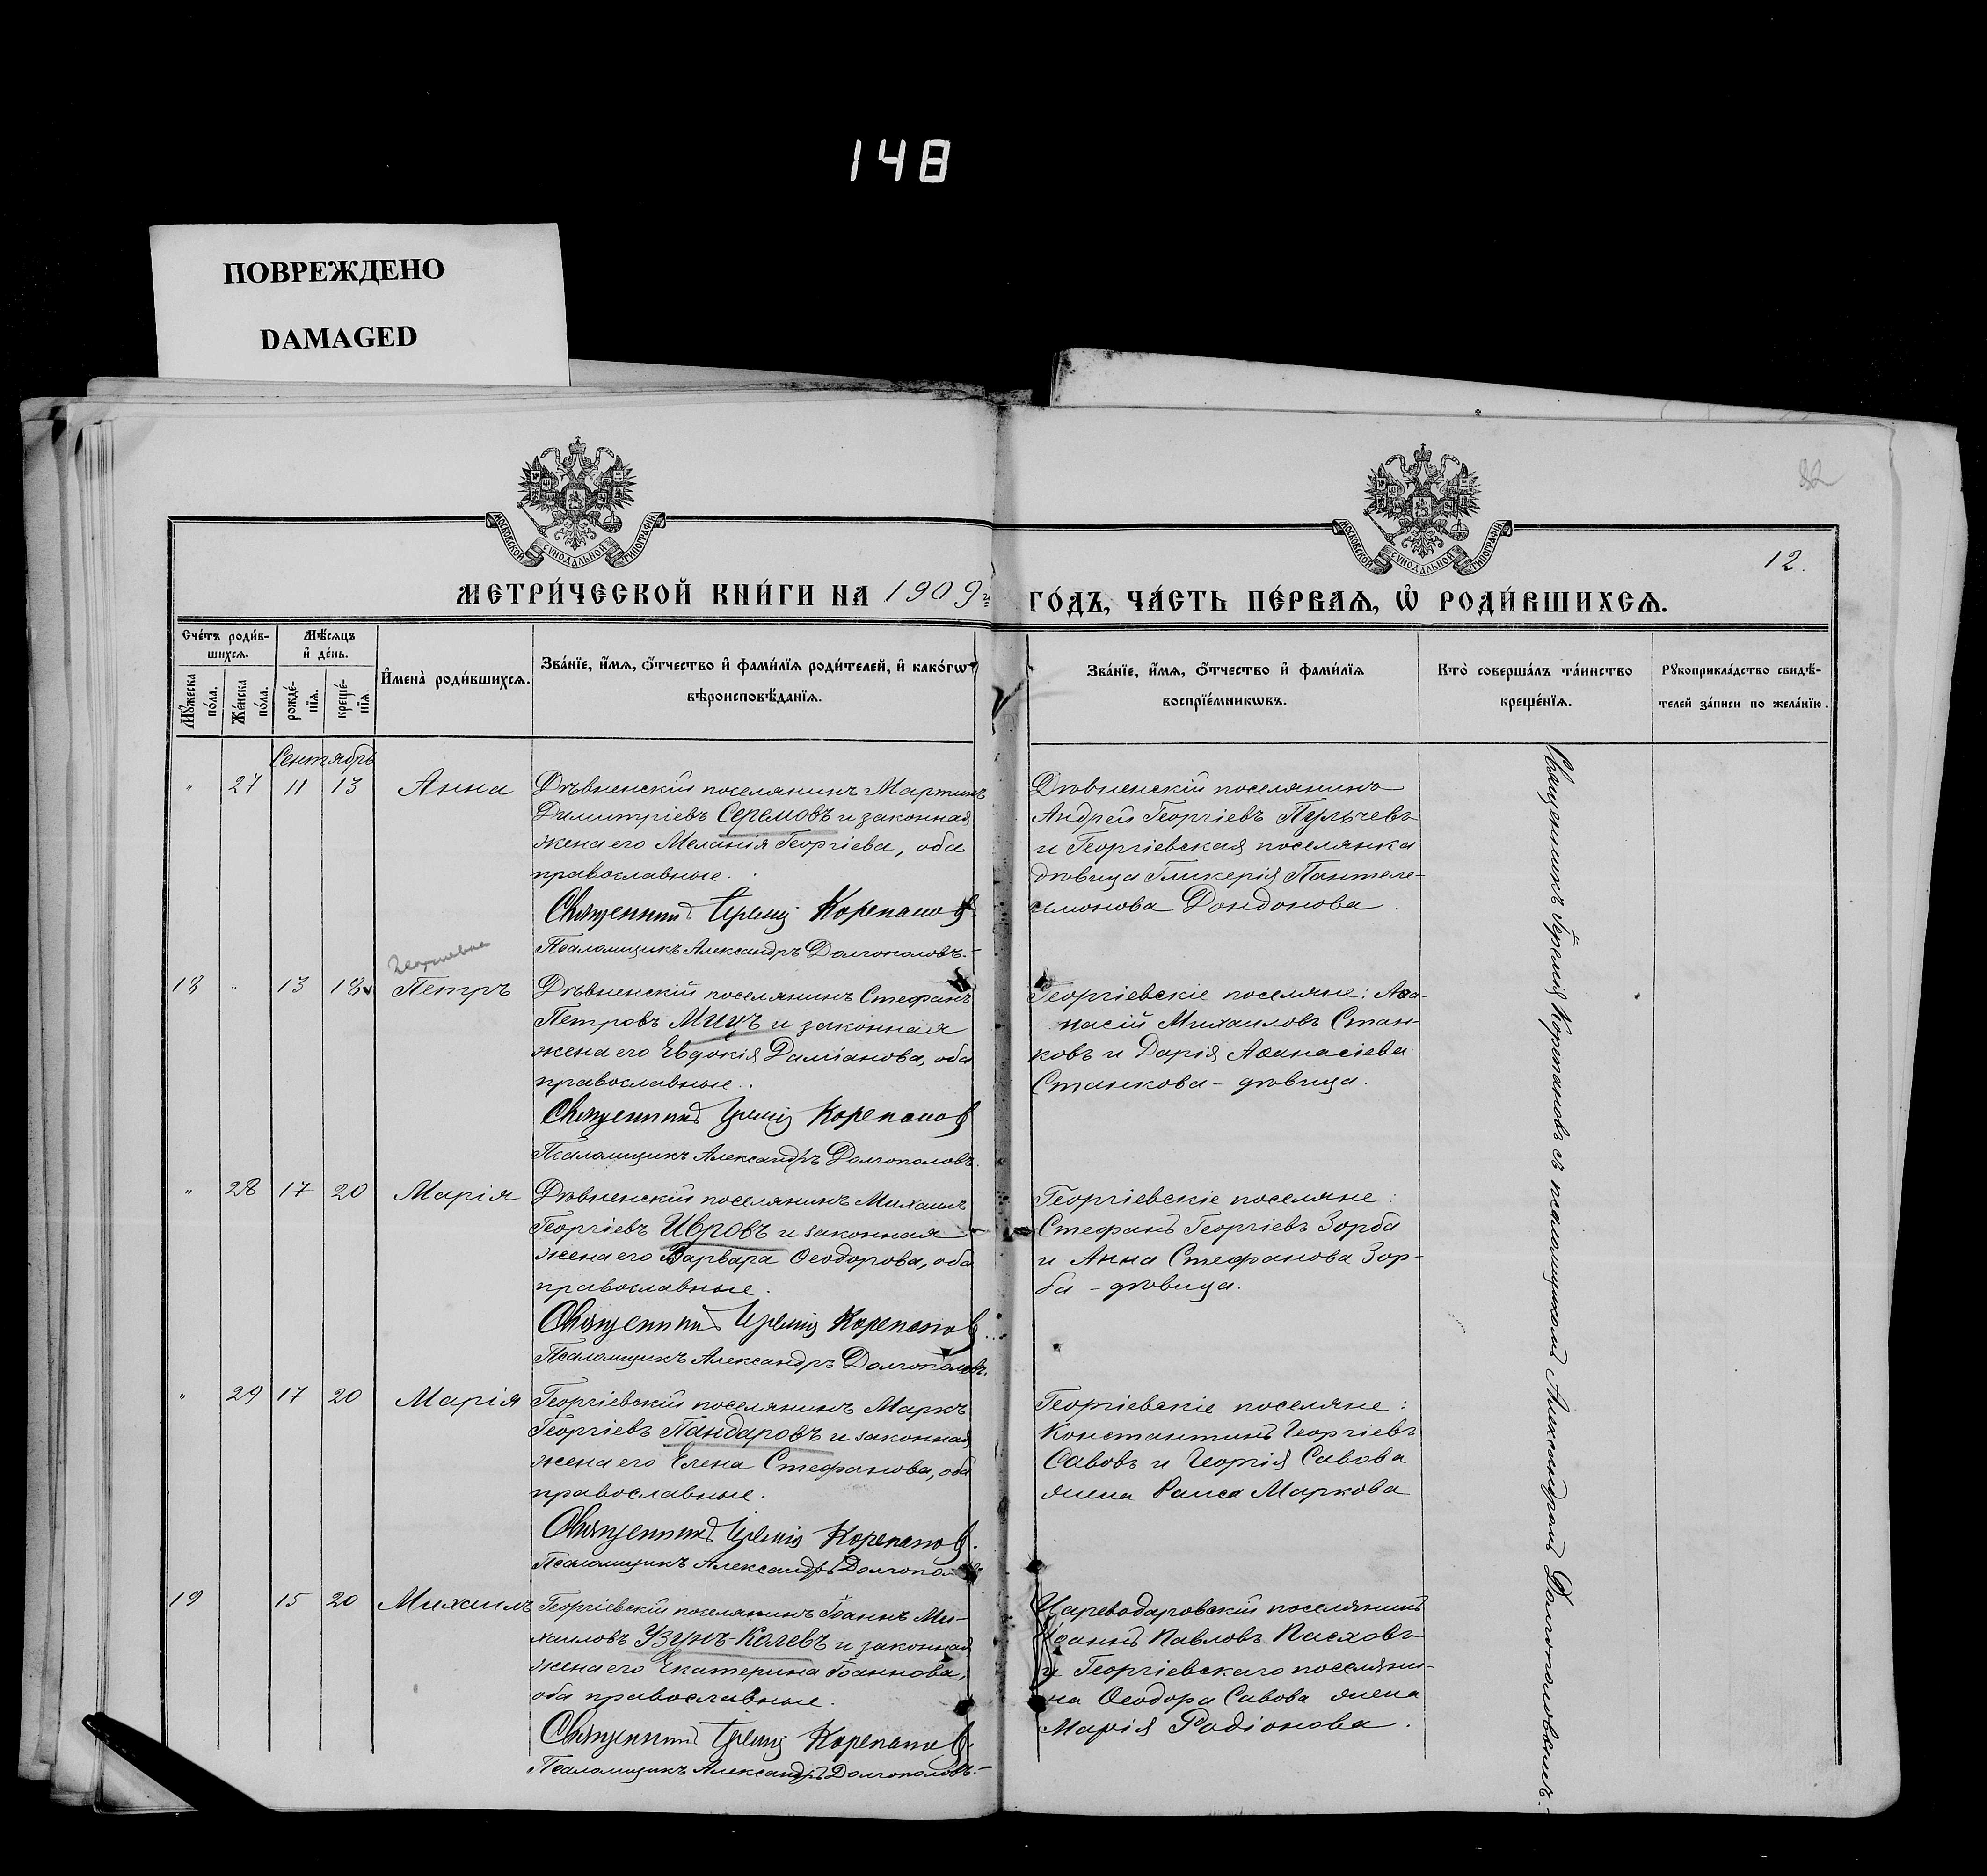 148
ПОВРЕЖДЕНО
DAMAGED
МОСКОВСКОЙ СУНОДАЛЬНОЙ ТИПОГРАФІИ
МОСКОВСКОЙ СУНОДАЛЬНОЙ ТИПОГРАФІИ
12.
МЕТРИ́ЧЕСКОЙ КНИ́ГИ НА 1909
ГО́ДЪ, ЧА́СТЬ ПЕ́РВАѦ, Ѡ҆ РОДИ́ВШИХСѦ.
Сче́тъ роди́в-
шихсѧ.
Мꙋ́жеска по́ла.
Же́нска по́ла.
Мѣ́сѧцъ
и҆ де́нь.
рожде́-
нїѧ.
креще́-
нїѧ.
И҆мена̀ роди́вшихсѧ.
Зва́нїе, и҆́мѧ, ѻ҆́тчество и҆ фами́лїѧ роди́телей, и҆ како́гѡ
вѣроисповѣ́данїѧ.
Зва́нїе, и҆́мѧ, ѻ҆́тчество и҆ фами́лїѧ
воспрїе́мникѡвъ.
Кто̀ соверша́лъ та́инство
креще́нїѧ.
Рꙋкоприкла́дство свидѣ́-
телей за́писи по жела́нїю.
Сентябрь
" 27 11 13 Анна
Дѣвненскій поселянинъ Мартинъ
Димитріевъ Серемовъ и законная
жена его Меланія Георгіева, оба
православные.
Священникъ Іеремія Корепановъ
Псаломщикъ Александръ Долгополовъ.
Дѣвненскій поселянинъ
Андрей Георгіевъ Пульчевъ
и Георгіевская поселянка
дѣвица Гликерія Пантеле-
имонова Дондонова.
18 " 13 18 Петръ
Дѣвненскій поселянинъ Стефанъ
Петровъ Мицъ и законная
жена его Евдокія Даміанова, оба
православные.
Священникъ Іеремія Корепановъ
Псаломщикъ Александръ Долгополовъ.
Георгіевскіе поселяне: Аѳа-
насій Михаиловъ Стан-
ковъ и Дарія Аѳанасіева
Станкова - дѣвица.
" 28 17 20 Марія
Дѣвненскій поселянинъ Михаилъ
Георгіевъ Ивровъ и законная
жена его Варвара Ѳеодорова, оба
православные.
Священникъ Іеремія Корепановъ.
Псаломщикъ Александръ Долгополовъ.
Георгіевскіе поселяне:
Стефанъ Георгіевъ Зорба
и Анна Стефанова Зор-
ба - дѣвица.
" 29 17 20 Марія
Георгіевскій поселянинъ Маркъ
Георгіевъ Пандаровъ и законная
жена его Елена Стефанова, оба
православные.
Священникъ Іеремія Корепановъ.
Псаломщикъ Александръ Долгополовъ
Георгіевскіе поселяне:
Константинъ Георгіевъ
Савовъ и Георгія Савова
жена Раиса Маркова
19 15 20 Михаилъ
Георгіевскій поселянинъ Іоаннъ Ми-
хаиловъ Узунъ-Колевъ и законная
жена его Екатерина Іоаннова,
оба православные.
Священникъ Іеремія Корепановъ.
Псаломщикъ Александръ Долгополовъ.
Цареводаровскій поселянинъ
Іоаннъ Павловъ Пасховъ
и Георгіевскаго поселяни-
на Ѳеодора Савова жена
Марія Родіонова.
Священникъ Іеремія Корепановъ съ псаломщикомъ Александромъ Долгополовымъ.